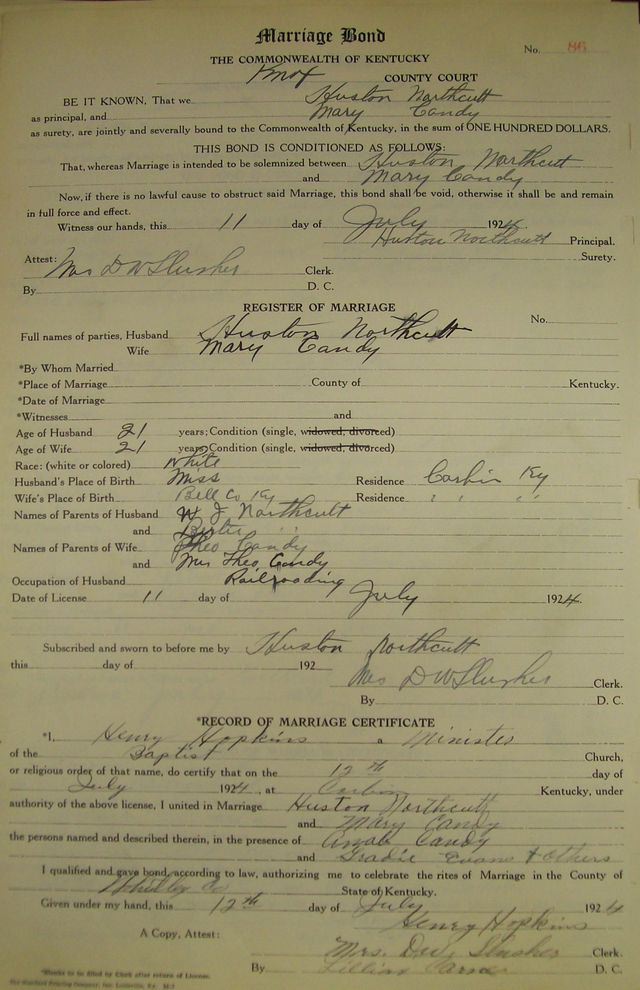 Marriage Bond
No. 86
THE COMMONWEALTH OF KENTUCKY
Knox COUNTY COURT
BE IT KNOWN, That we Huston Northcutt
as principal, and Mary Candy
as surety, are jointly and severally bound to the Commonwealth of Kentucky, in the sum of ONE HUNDRED DOLLARS.
THIS BOND IS CONDITIONED AS FOLLOWS:
That, whereas Marriage is intended to be solemnized between Huston Northcutt
and Mary Candy
Now, if there is no lawful cause to obstruct said Marriage, this bond shall be void, otherwise it shall be and remain
in full force and effect.
Witness our hands, this 11 day of July 1924.
Huston Northcutt Principal.
Surety.
Attest: Mrs D W Slusher Clerk.
By D. C.
REGISTER OF MARRIAGE
No.
Full names of parties, Husband Huston Northcutt
Wife Mary Candy
*By Whom Married
*Place of Marriage County of Kentucky.
*Date of Marriage
*Witnesses and
Age of Husband 21 years; Condition (single, widowed, divorced)
Age of Wife 21 years; Condition (single, widowed, divorced)
Race: (white or colored) White
Husband's Place of Birth Miss Residence Corbin Ky
Wife's Place of Birth Bell Co Ky Residence " " " "
Names of Parents of Husband W J Northcutt
and " "
Names of Parents of Wife Theo Candy
and Mrs Theo Candy
Occupation of Husband Railroading
Date of License 11 day of July 1924.
Subscribed and sworn to before me by Huston Northcutt
this day of 192
Mrs D W Slusher Clerk.
By D. C.
*RECORD OF MARRIAGE CERTIFICATE
*I, Henry Hopkins a Minister
of the Baptist Church,
or religious order of that name, do certify that on the 12th day of
July 1924, at Corbin Kentucky, under
authority of the above license, I united in Marriage Huston Northcutt
and Mary Candy
the persons named and described therein, in the presence of Candy
and Gradie Evans & Others
I qualified and gave bond, according to law, authorizing me to celebrate the rites of Marriage in the County of
Whitley Co State of Kentucky.
Given under my hand, this 12th day of July 1924
Henry Hopkins
A Copy, Attest: Mrs. Slusher Clerk.
By Lillian D. C.
*Blanks to be filled by Clerk after return of License.
The Standard Printing Company, Inc. Louisville, Ky.